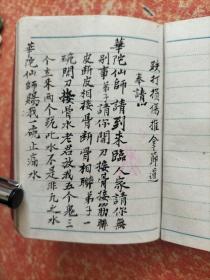 跌打損傷推全節道
奉請
華陀仙師請到來臨人家請你無
別事弟子請你開刀接骨接筋聯
皮斷皮相接骨斷骨相聯弟子一
硫明刀接骨水老君放我五个鬼三
个立朱兩个號此水不是非凡之水
華陀仙師賜我一硫止痛水